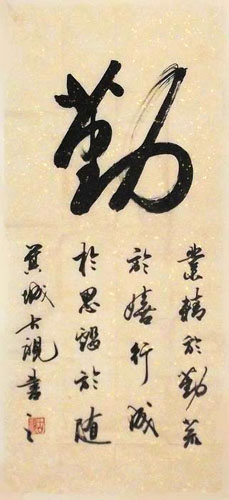 勤
業精於勤荒
於嬉行成
於思毀於随
城視書之